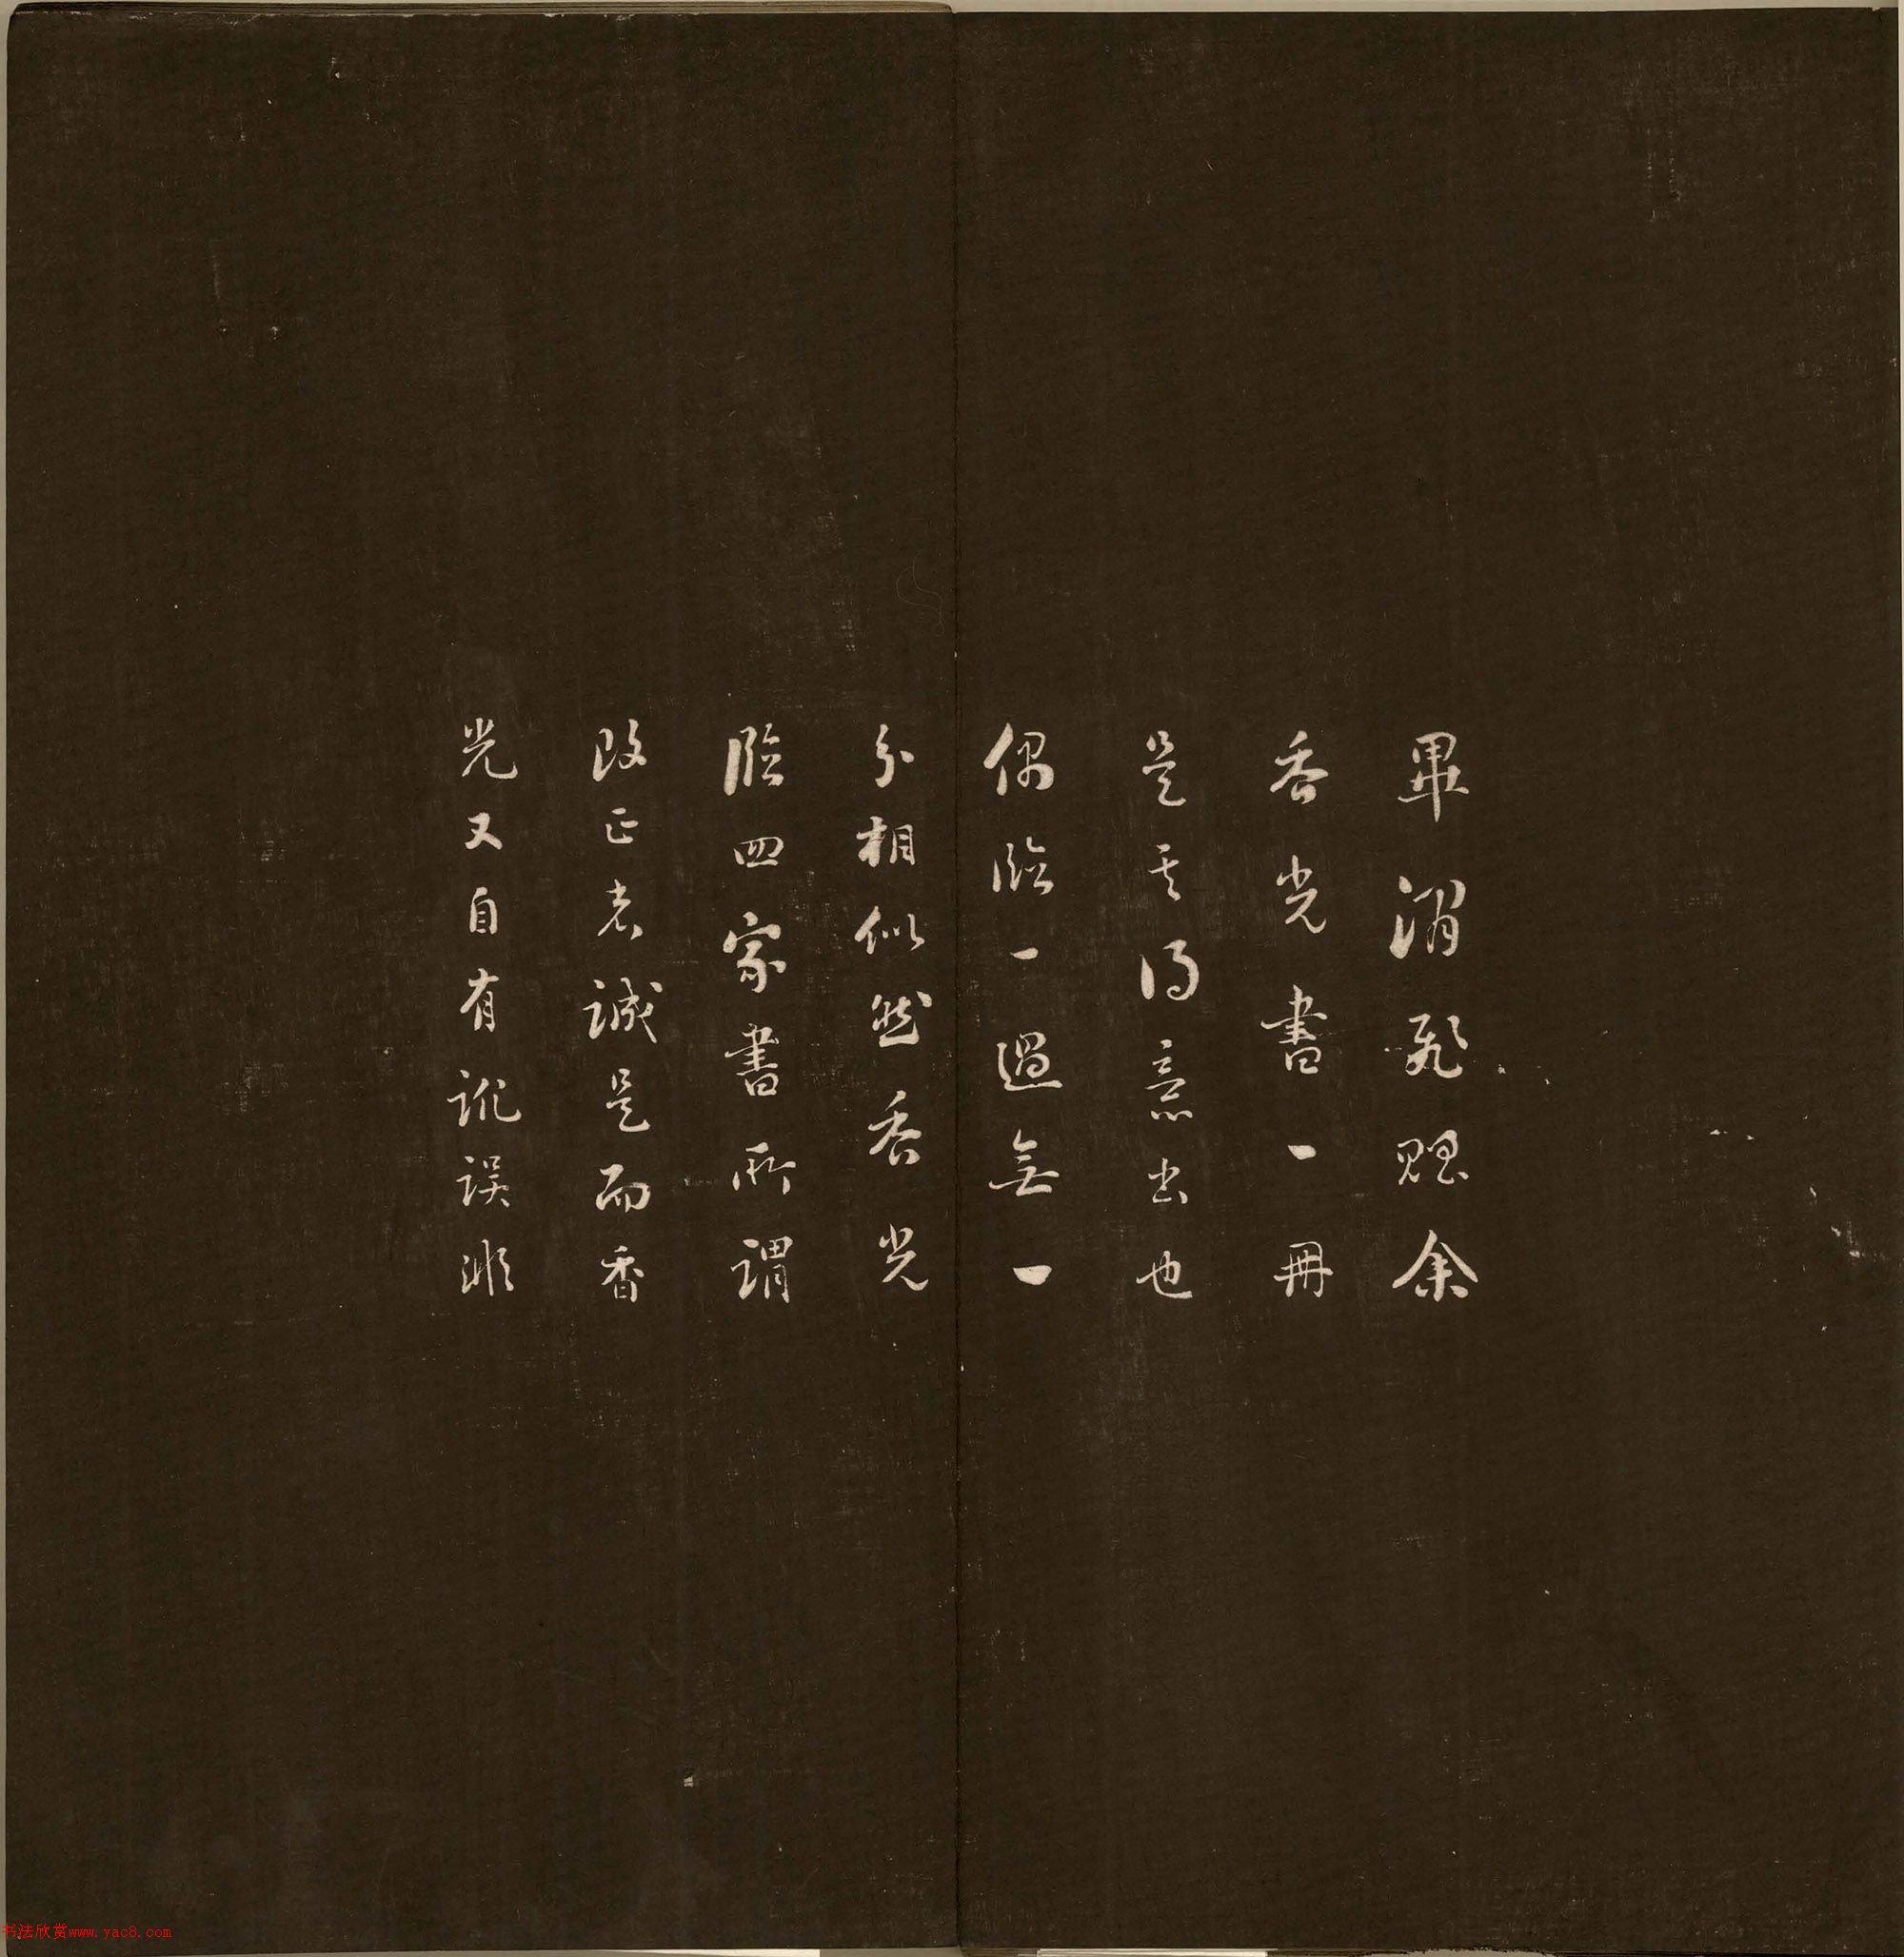 畢澗飛贻余
香光書一冊
是其得意書也
偶臨一過無一
分相似然香光
臨四家書所謂
改正者誠是而香
光又自有訛誤非
书法欣赏www.yac8.com